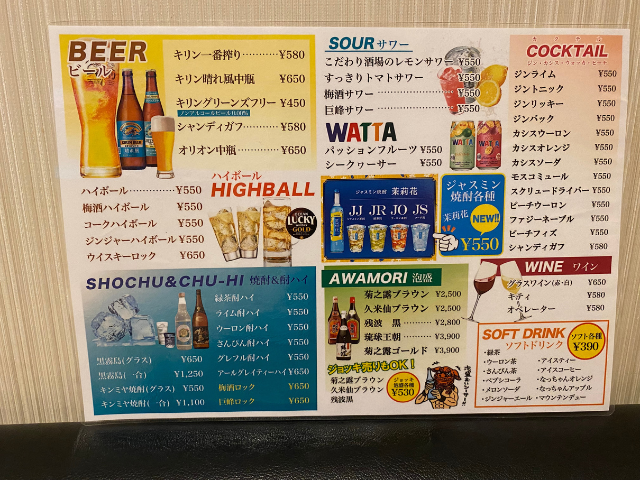 BEER
ビール
キリン一番搾り ¥580
キリン晴れ風中瓶 ¥650
キリングリーンズフリー ¥450
シャンディガフ ¥580
オリオン中瓶 ¥650
SOUR サワー
こだわり酒場のレモンサワー ¥550
すっきりトマトサワー ¥550
梅酒サワー ¥550
巨峰サワー ¥550
WATTA
パッションフルーツ ¥550
シークヮーサー ¥550
COCKTAIL
ジン・カシス・ウォッカ・ピーチ
ジンライム ¥550
ジントニック ¥550
ジンリッキー ¥550
ジンバック ¥550
カシスウーロン ¥550
カシスオレンジ ¥550
カシスソーダ ¥550
モスコミュール ¥550
スクリュードライバー ¥550
ピーチウーロン ¥550
ファジーネーブル ¥550
ピーチフィズ ¥550
シャンディガフ ¥580
ハイボール
HIGHBALL
ハイボール ¥550
梅酒ハイボール ¥550
コークハイボール ¥550
ジンジャーハイボール ¥550
ウイスキーロック ¥650
LUCKY
GOLD
ジャスミン焼酎 茉莉花
JJ JR JO JS
ジャスミン
焼酎各種
茉莉花
NEW!!
¥550
SHOCHU&CHU-HI 焼酎&酎ハイ
緑茶酎ハイ ¥550
ライム酎ハイ ¥550
ウーロン酎ハイ ¥550
さんぴん酎ハイ ¥550
グレフル酎ハイ ¥550
アールグレイティーハイ ¥550
梅酒ロック ¥650
巨峰ロック ¥650
黒霧島(グラス) ¥650
黒霧島(一合) ¥1,250
キンミヤ焼酎(グラス) ¥550
キンミヤ焼酎(一合) ¥1,100
AWAMORI 泡盛
菊之露ブラウン ¥2,500
久米仙ブラウン ¥2,500
残波 黒 ¥2,800
琉球王朝 ¥3,900
菊之露ゴールド ¥3,900
ジョッキ売りもOK!
菊之露ブラウン
久米仙ブラウン
残波黒
ジョッキ
泡盛各種
¥530
WINE ワイン
グラスワイン(赤・白) ¥650
キティ ¥580
オペレーター ¥580
SOFT DRINK
ソフトドリンク
ソフト各種
¥390
・緑茶
・ウーロン茶
・さんぴん茶
・ペプシコーラ
・メロンソーダ
・ジンジャーエール
・アイスティー
・アイスコーヒー
・なっちゃんオレンジ
・なっちゃんアップル
・マウンテンデュー